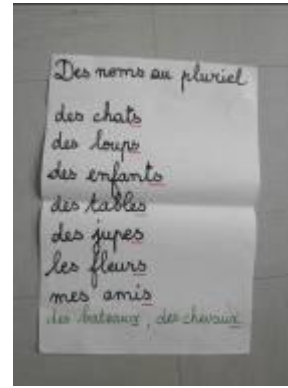 Des noms au pluriel
des chats
des loups
des enfants
des tables
des jupes
les fleurs
mes amis
des bateaux, des chevaux